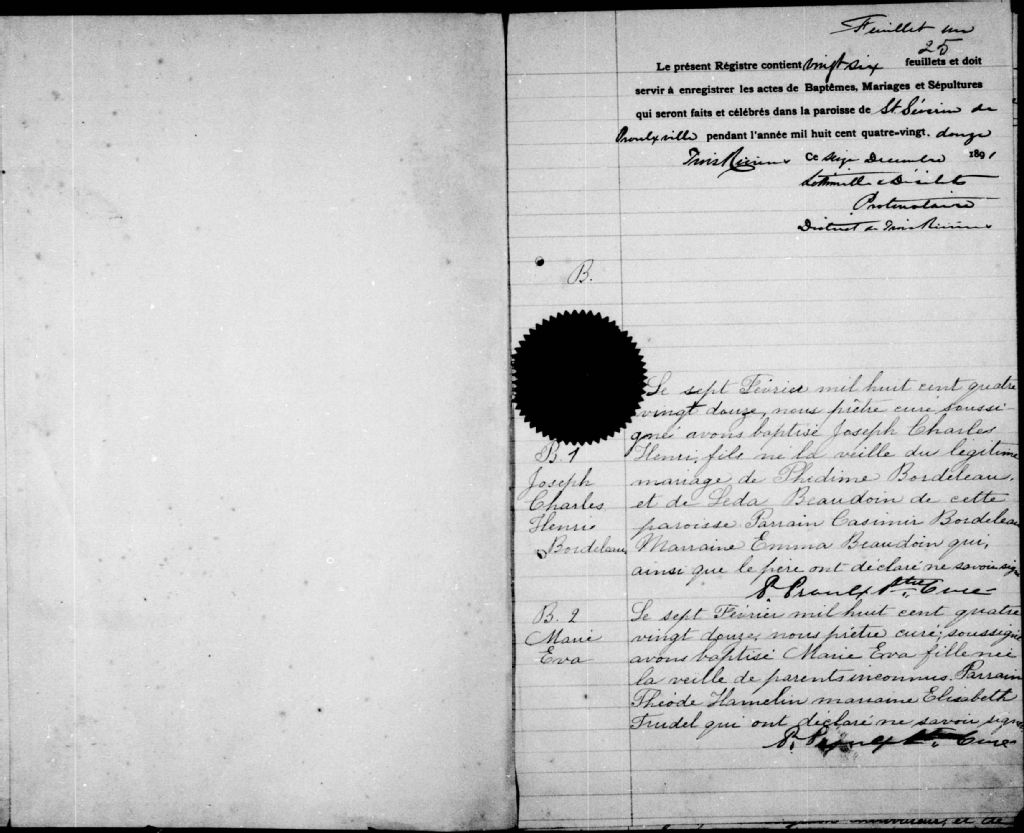 Feuillet un
25
Le présent Régistre contient vingt six feuillets et doit
servir à enregistrer les actes de Baptêmes, Mariages et Sépultures
qui seront faits et célébrés dans la paroisse de St Séverin de
Proulxville pendant l'année mil huit cent quatre-vingt. douze
Trois Rivieres Ce seize Decembre 1891
Protonotaire
District de Trois Rivieres
B.
Le sept Février mil huit cent quatre
vingt douze, nous prêtre curé soussi-
gné avons baptisé Joseph Charles
B. 1 Henri, fils né la veille du légitime
Joseph mariage de Phidime Bordeleau,
Charles et de Leda Beaudoin de cette
Henri paroisse Parrain Casimir Bordeleau
Bordeleau Marraine Emma Beaudoin qui,
ainsi que le père ont déclaré ne savoir sign
P. Proulx Ptre, Curé
B. 2 Le sept Février mil huit cent quatre
Marie vingt douze, nous prêtre curé, soussigné
Eva avons baptisé Marie Eva fille née
la veille de parents inconnus. Parrain
Théode Hamelin marraine Elisabeth
Trudel qui ont déclaré ne savoir signer
P. Proulx Ptre, Curé
et de